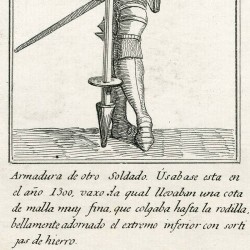 Armadura de otro Soldado. Úsabase esta en
el año 1300, vaxo da qual llevaban una cota
de malla muy fina, que colgaba hasta la rodilla,
bellamente adornado el extremo inferior con sorti
jas de hierro.